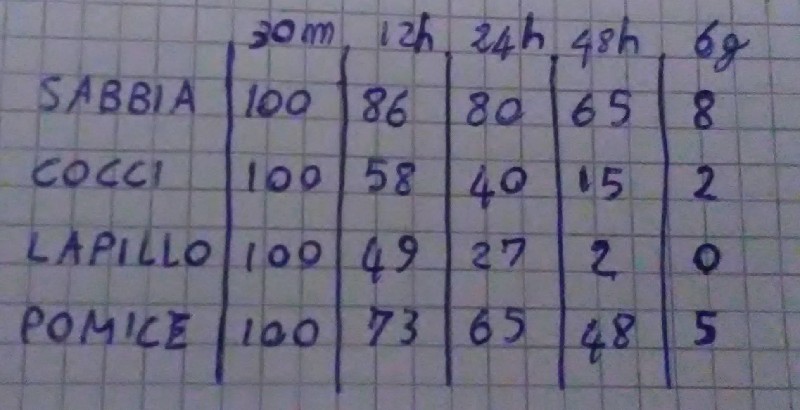 30m 12h 24h 48h 6g
SABBIA 100 86 80 65 8
COCCI 100 58 40 15 2
LAPILLO 100 49 27 2 0
POMICE 100 73 65 48 5